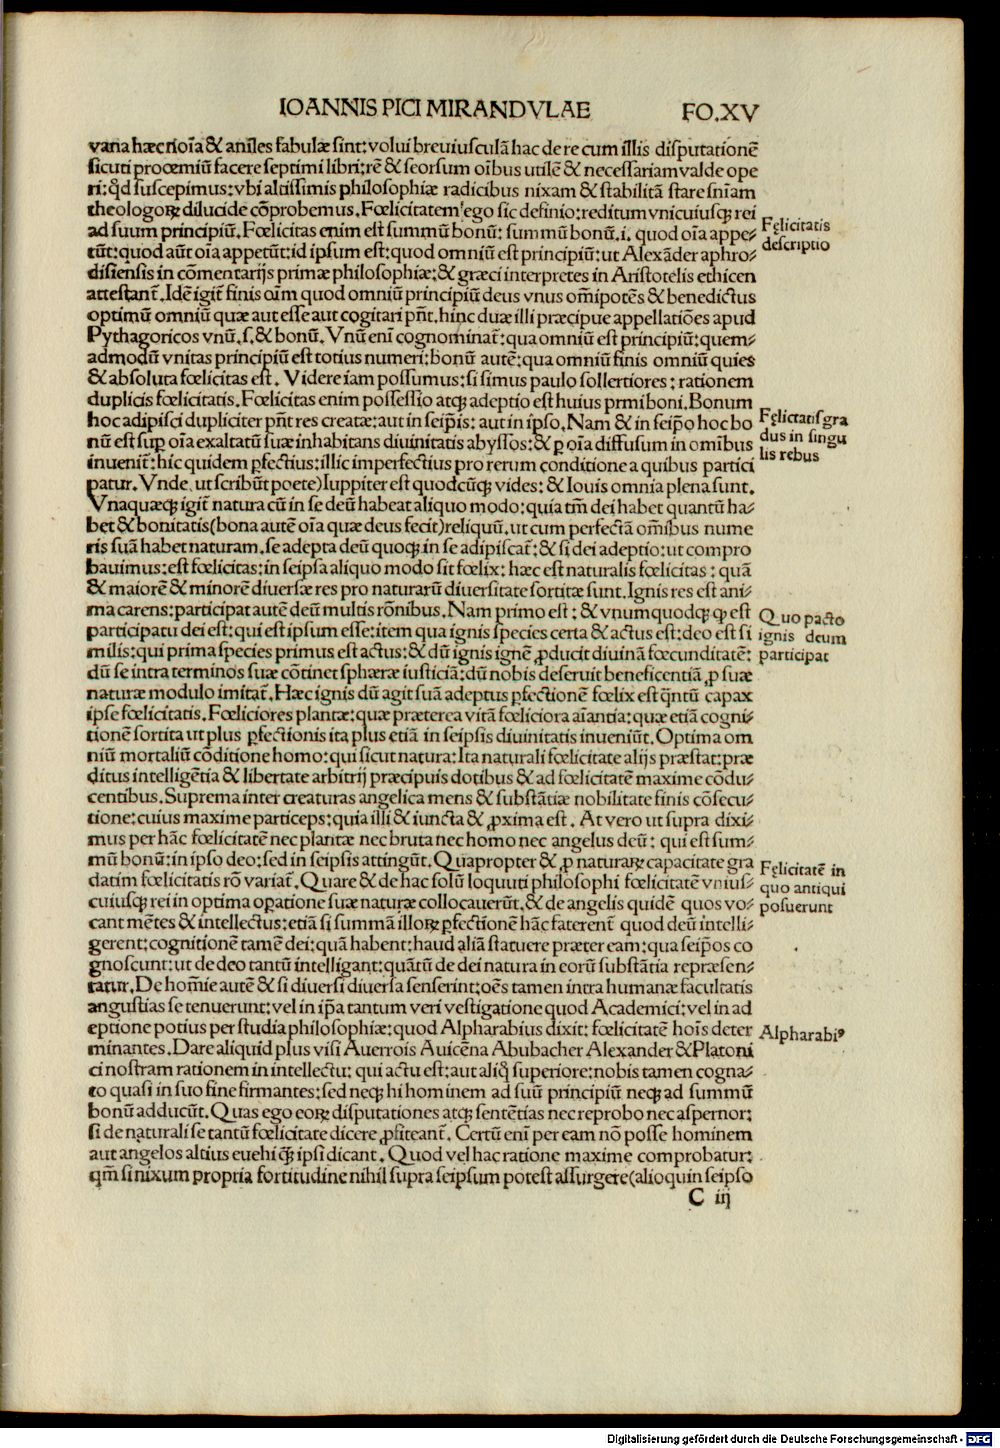 IOANNIS PICI MIRANDVLAE FO.XV
vana hæc nōia & aniles fabulæ sint: volui breuiusculā hac de re cum illis disputationē
sicuti procemiū facere septimi libri: rē & seorsum oībus utilē & necessariam valde ope
ri: qd suscepimus: vbi altissimis philosophiæ radicibus nixam & stabilitā stare snīam
theologoꝝ dilucide cōprobemus. Fœlicitatem ego sic definio: reditum vniuscuiusqꝫ rei
ad suum principiū. Fœlicitas enim est summū bonū: summū bonū .i. quod oīa appe⸗
Fęlicitatis
descriptio
tūt: quod aūt oīa appetūt: id ipsum est: quod omniū est principiū: ut Alexāder aphro⸗
disiensis in cōmentarijs primæ philosophiæ: & græci interpretes in Aristotelis ethicen
attestant̄. Idē igit̄ finis oīm quod omniū principiū deus vnus om̄ipotēs & benedictus
optimū omniū quæ aut esse aut cogitari pn̄t. hinc duæ illi præcipue appellatiōes apud
Pythagoricos vnū .s. & bonū. Vnū enī cognominat̄: qua omniū est principiū: quem⸗
admodū vnitas principiū est totius numeri: bonū autē: qua omniū finis omniū quies
& absoluta fœlicitas est. Videre iam possumus: si simus paulo sollertiores: rationem
duplicis fœlicitatis. Fœlicitas enim possessio atqꝫ adeptio est huius prmi boni. Bonum
hoc adipisci dupliciter pn̄t res creatæ: aut in seip̄is: aut in ipso. Nam & in seip̄o hoc bo
Fęlictatis gra
dus in singu
lis rebus
nū est suꝑ oīa exaltatū suæ inhabitans diuinitatis abyssos: & ꝑ oīa diffusum in om̄ibus
inuenit̄: hic quidem ꝑfectius: illic imperfectius pro rerum conditione a quibus partici
patur. Vnde, ut scribūt poete) Iuppiter est quodcūqꝫ vides: & Iouis omnia plena sunt.
Vnaquæqꝫ igit̄ natura cū in se deū habeat aliquo modo: quia tm̄ dei habet quantū ha⸗
bet & bonitatis (bona autē oīa quæ deus fecit) reliquū, ut cum perfectā om̄ibus nume
ris suā habet naturam, se adepta deū quoqꝫ in se adipiscat̄: & si dei adeptio: ut compro
bauimus: est fœlicitas: in seipsa aliquo modo sit fœlix: hæc est naturalis fœlicitas: quā
& maiorē & minorē diuersæ res pro naturarū diuersitate sortitæ sunt. Ignis res est ani⸗
ma carens: participat autē deū multis rōnibus. Nam primo est: & vnumquodqꝫ qꝫ est
Quo pacto
ignis deum
participat
participatu dei est: qui est ipsum esse: item qua ignis species certa & actus est: deo est si
milis: qui prima species primus est actus: & dū ignis ignē ꝓducit diuinā fœcunditatē:
dū se intra terminos suæ cōtinet sphæræ iusticiā: dū nobis deseruit beneficentiā ꝓ suæ
naturæ modulo imitat̄. Hæc ignis dū agit suā adeptus ꝑfectionē fœlix est qn̄tū capax
ipse fœlicitatis. Fœliciores plantæ: quæ præterea vitā fœliciora aīantia: quæ etiā cogni⸗
tionē sortita ut plus ꝑfectionis ita plus etiā in seipsis diuinitatis inueniūt. Optima om
niū mortaliū cōditione homo: qui sicut natura: Ita naturali fœlicitate alijs præstat: præ
ditus intelligētia & libertate arbitrij præcipuis dotibus & ad fœlicitatē maxime cōdu⸗
centibus. Suprema inter creaturas angelica mens & substātiæ nobilitate finis cōsecu⸗
tione: cuius maxime particeps: quia illi & iuncta & ꝓxima est. At vero ut supra dixi⸗
mus per hāc fœlicitatē nec plantæ nec bruta nec homo nec angelus deū: qui est sum⸗
mū bonū: in ipso deo: sed in seipsis attingūt. Quapropter & ꝓ naturaꝝ capacitate gra
Fęlicitatē in
quo antiqui
posuerunt
datim fœlicitatis rō variat̄. Quare & de hac solū loquuti philosophi fœlicitatē vnius⸗
cuiusqꝫ rei in optima oꝑatione suæ naturæ collocauerūt, & de angelis quidē quos vo⸗
cant mētes & intellectus: etiā si summā illoꝝ ꝑfectionē hāc faterent̄ quod deū intelli⸗
gerent: cognitionē tamē dei: quā habent: haud aliā statuere præter eam: qua seip̄os co
gnoscunt: ut de deo tantū intelligant: quātū de dei natura in eorū substātia repræsen⸗
tatur. De hom̄ie autē & si diuersi diuersa senserint: oēs tamen intra humanæ facultatis
angustias se tenuerunt: vel in ip̄a tantum veri vestigatione quod Academici: vel in ad
eptione potius per studia philosophiæ: quod Alpharabius dixit: fœlicitatē hoīs deter
Alpharabiꝰ
minantes. Dare aliquid plus visi Auerrois Auicēna Abubacher Alexander & Platoni
ci nostram rationem in intellectu: qui actu est: aut aliq̄ superiore: nobis tamen cogna⸗
to quasi in suo fine firmantes: sed neqꝫ hi hominem ad suū principiū neqꝫ ad summū
bonū adducūt. Quas ego eoꝝ disputationes atqꝫ sentētias nec reprobo nec aspernor:
si de naturali se tantū fœlicitate dicere ꝓfiteant̄. Certū enī per eam nō posse hominem
aut angelos altius euehi qꝫ ipsi dicant. Quod vel hac ratione maxime comprobatur:
qm̄ si nixum propria fortitudine nihil supra seipsum potest assurgere (alioquin seipso
C iij
Digitalisierung gefördert durch die Deutsche Forschungsgemeinschaft - DFG